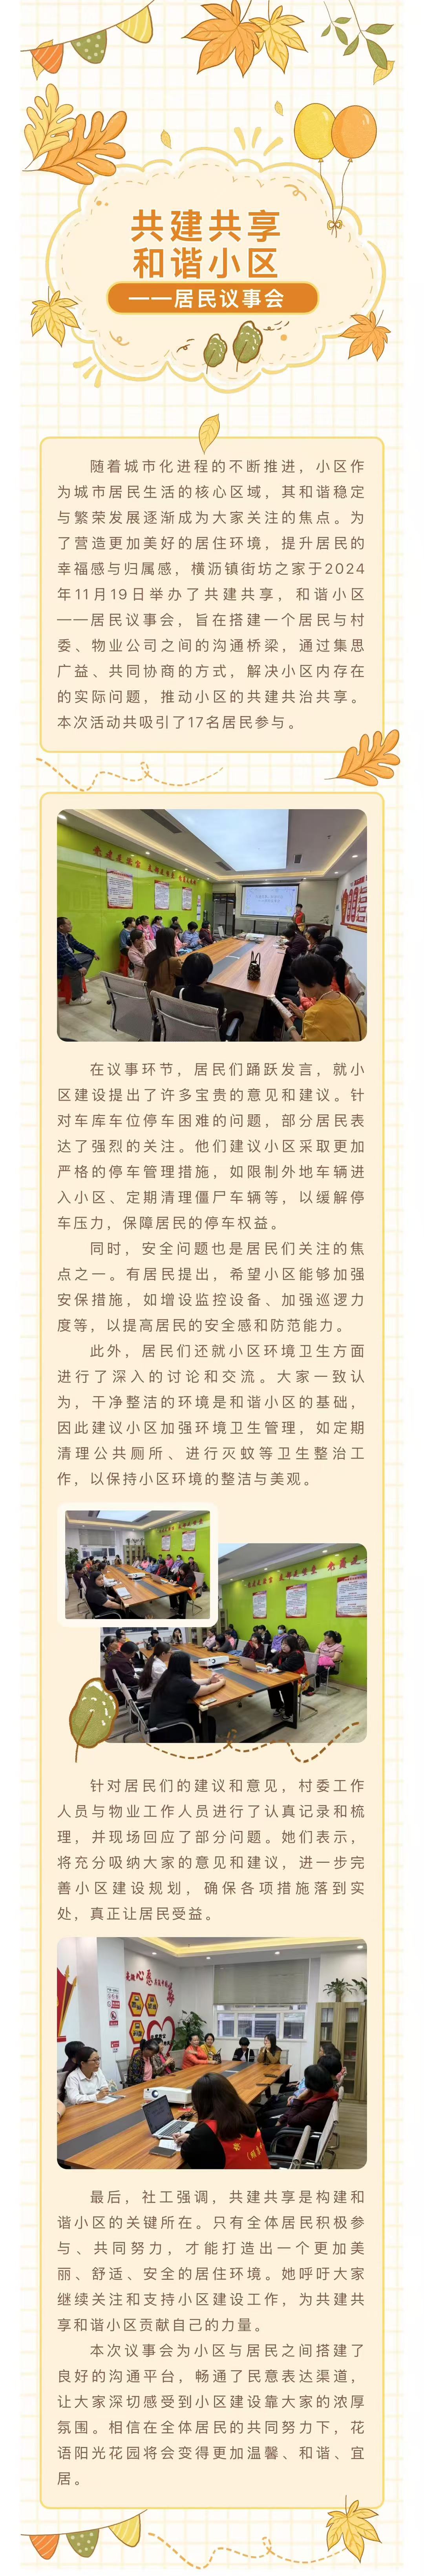 共建共享
和谐小区
——居民议事会
随着城市化进程的不断推进，小区作
为城市居民生活的核心区域，其和谐稳定
与繁荣发展逐渐成为大家关注的焦点。为
了营造更加美好的居住环境，提升居民的
幸福感与归属感，横沥镇街坊之家于2024
年11月19日举办了共建共享，和谐小区
——居民议事会，旨在搭建一个居民与村
委、物业公司之间的沟通桥梁，通过集思
广益、共同协商的方式，解决小区内存在
的实际问题，推动小区的共建共治共享。
本次活动共吸引了17名居民参与。
在议事环节，居民们踊跃发言，就小
区建设提出了许多宝贵的意见和建议。针
对车库车位停车困难的问题，部分居民表
达了强烈的关注。他们建议小区采取更加
严格的停车管理措施，如限制外地车辆进
入小区、定期清理僵尸车辆等，以缓解停
车压力，保障居民的停车权益。
同时，安全问题也是居民们关注的焦
点之一。有居民提出，希望小区能够加强
安保措施，如增设监控设备、加强巡逻力
度等，以提高居民的安全感和防范能力。
此外，居民们还就小区环境卫生方面
进行了深入的讨论和交流。大家一致认
为，干净整洁的环境是和谐小区的基础，
因此建议小区加强环境卫生管理，如定期
清理公共厕所、进行灭蚊等卫生整治工
作，以保持小区环境的整洁与美观。
针对居民们的建议和意见，村委工作
人员与物业工作人员进行了认真记录和梳
理，并现场回应了部分问题。她们表示，
将充分吸纳大家的意见和建议，进一步完
善小区建设规划，确保各项措施落到实
处，真正让居民受益。
最后，社工强调，共建共享是构建和
谐小区的关键所在。只有全体居民积极参
与、共同努力，才能打造出一个更加美
丽、舒适、安全的居住环境。她呼吁大家
继续关注和支持小区建设工作，为共建共
享和谐小区贡献自己的力量。
本次议事会为小区与居民之间搭建了
良好的沟通平台，畅通了民意表达渠道，
让大家深切感受到小区建设靠大家的浓厚
氛围。相信在全体居民的共同努力下，花
语阳光花园将会变得更加温馨、和谐、宜
居。